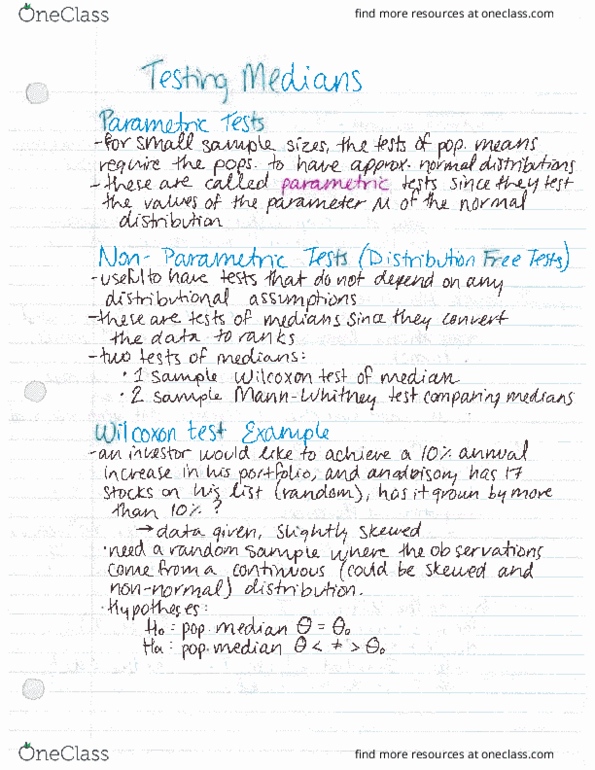 OneClass
find more resources at oneclass.com
Testing Medians
Parametric Tests
-for small sample sizes, the tests of pop. means
require the pops. to have approx. normal distributions
-these are called parametric tests since they test
the values of the parameter M of the normal
distribution
Non-Parametric Tests (Distribution Free Tests)
-useful to have tests that do not depend on any
distributional assumptions
-these are tests of medians since they convert
the data to ranks
-two tests of medians:
• 1 sample Wilcoxon test of median
• 2 sample Mann-Whitney test comparing medians
Wilcoxon test Example
-an investor would like to achieve a 10% annual
increase in his portfolio, and has 17
stocks on his list (random), has it grown by more
than 10%?
→ data given, slightly skewed
• need a random sample where the observations
come from a continuous (could be skewed and
non-normal) distribution.
• Hypotheses:
H₀: pop. median θ = θ₀
Ha: pop. median θ < ≠ > θ₀
OneClass
find more resources at oneclass.com